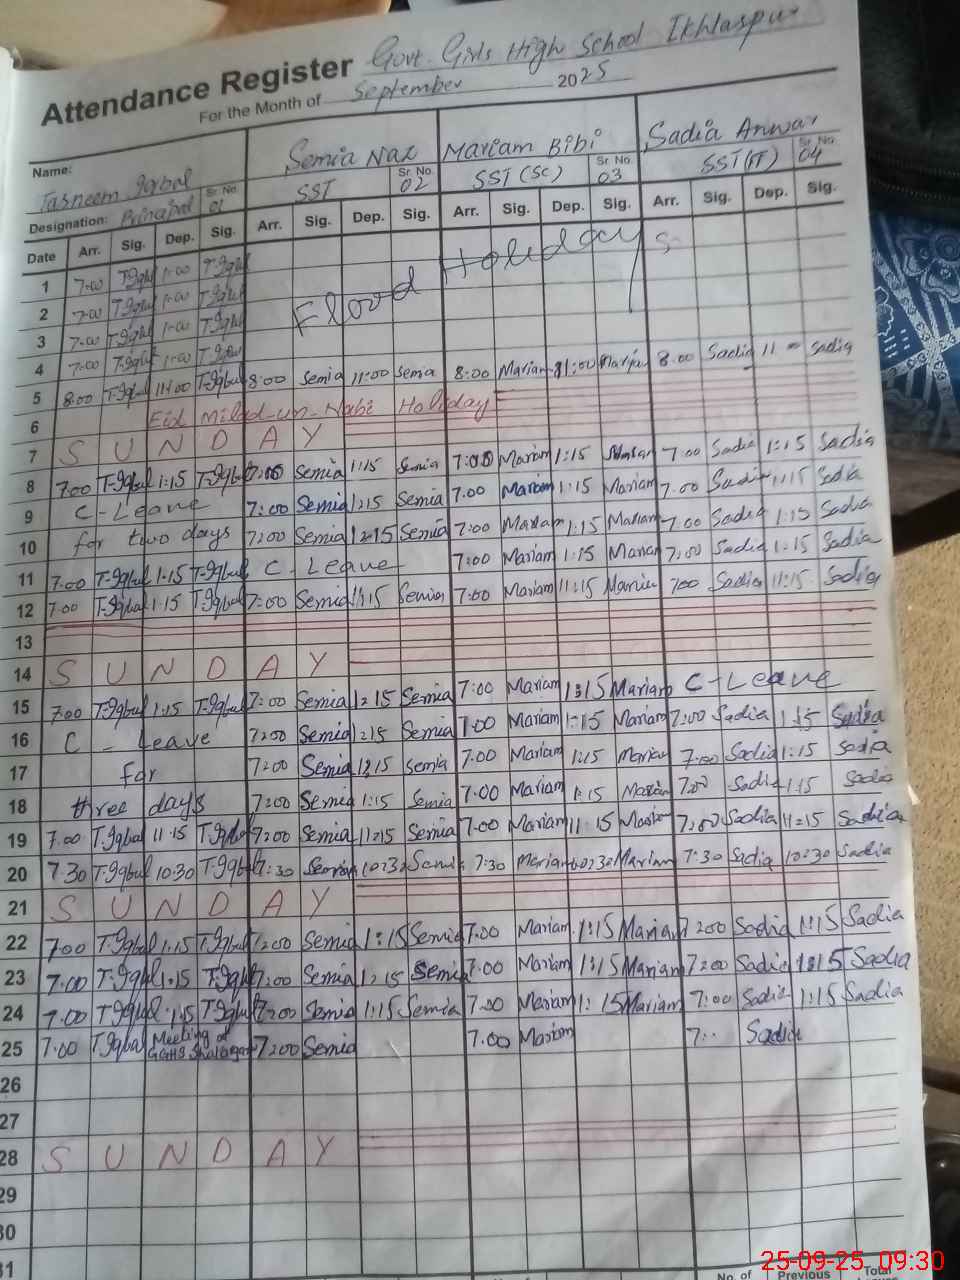 Attendance Register Govt. Girls High School Ikhlaspur
For the Month of September 2025
Name: Tasneem Iqbal Semia Naz Mariam Bibi Sadia Anwar
Designation: Principal Sr. No. 01 SST Sr. No. 02 SST (SC) Sr. No. 03 SST (IT) Sr. No. 04
Date Arr. Sig. Dep. Sig. Arr. Sig. Dep. Sig. Arr. Sig. Dep. Sig. Arr. Sig. Dep. Sig.
1 7-00 T.Iqbal 1-00 T.Iqbal Flood Holidays
2 7-00 T.Iqbal 1-00 T.Iqbal
3 7-00 T.Iqbal 1-00 T.Iqbal
4 7-00 T.Iqbal 1-00 T.Iqbal
5 8:00 T.Iqbal 11:00 T.Iqbal 8:00 Semia 11:00 Semia 8:00 Mariam 11:00 Mariam 8.00 Sadia 11 Sadia
6 Eid Milad-un-Nabi Holiday
7 S U N D A Y
8 7.00 T.Iqbal 1:15 T.Iqbal 7:00 Semia 1:15 Semia 7:00 Mariam 1:15 Mariam 7.00 Sadia 1:15 Sadia
9 C-Leave 7:00 Semia 1:15 Semia 7.00 Mariam 1:15 Mariam 7.00 Sadia 1:15 Sadia
10 for two days 7:00 Semia 1:15 Semia 7:00 Mariam 1:15 Mariam 7:00 Sadia 1:15 Sadia
11 7.00 T.Iqbal 1.15 T.Iqbal C-Leave 7:00 Mariam 1:15 Mariam 7:00 Sadia 1:15 Sadia
12 7.00 T.Iqbal 1:15 T.Iqbal 7:00 Semia 11:15 Semia 7:00 Mariam 11:15 Mariam 7:00 Sadia 11:15 Sadia
13
14 S U N D A Y
15 7:00 T.Iqbal 1:15 T.Iqbal 7:00 Semia 1:15 Semia 7:00 Mariam 1:15 Mariam C-Leave
16 C-Leave 7:00 Semia 1:15 Semia 7:00 Mariam 1:15 Mariam 7:00 Sadia 1:15 Sadia
17 for 7:00 Semia 1:15 Semia 7:00 Mariam 1:15 Mariam 7:00 Sadia 1:15 Sadia
18 three days 7:00 Semia 1:15 Semia 7:00 Mariam 1:15 Mariam 7:00 Sadia 1:15 Sadia
19 7.00 T.Iqbal 11:15 T.Iqbal 7:00 Semia 11:15 Semia 7.00 Mariam 11:15 Mariam 7:00 Sadia 11:15 Sadia
20 7.30 T.Iqbal 10:30 T.Iqbal 7:30 Semia 10:30 Semia 7:30 Mariam 10:30 Mariam 7:30 Sadia 10:30 Sadia
21 S U N D A Y
22 7:00 T.Iqbal 1:15 T.Iqbal 7:00 Semia 1:15 Semia 7:00 Mariam 1:15 Mariam 7:00 Sadia 1:15 Sadia
23 7:00 T.Iqbal 1:15 T.Iqbal 7:00 Semia 1:15 Semia 7:00 Mariam 1:15 Mariam 7:00 Sadia 1:15 Sadia
24 7:00 T.Iqbal 1:15 T.Iqbal 7:00 Semia 1:15 Semia 7:00 Mariam 1:15 Mariam 7:00 Sadia 1:15 Sadia
25 7:00 T.Iqbal Meeting at GGHS 7:00 Semia 7.00 Mariam 7: Sadia
26
27
28 S U N D A Y
29
30
31
No. of Previous Total
25-09-25 09:30